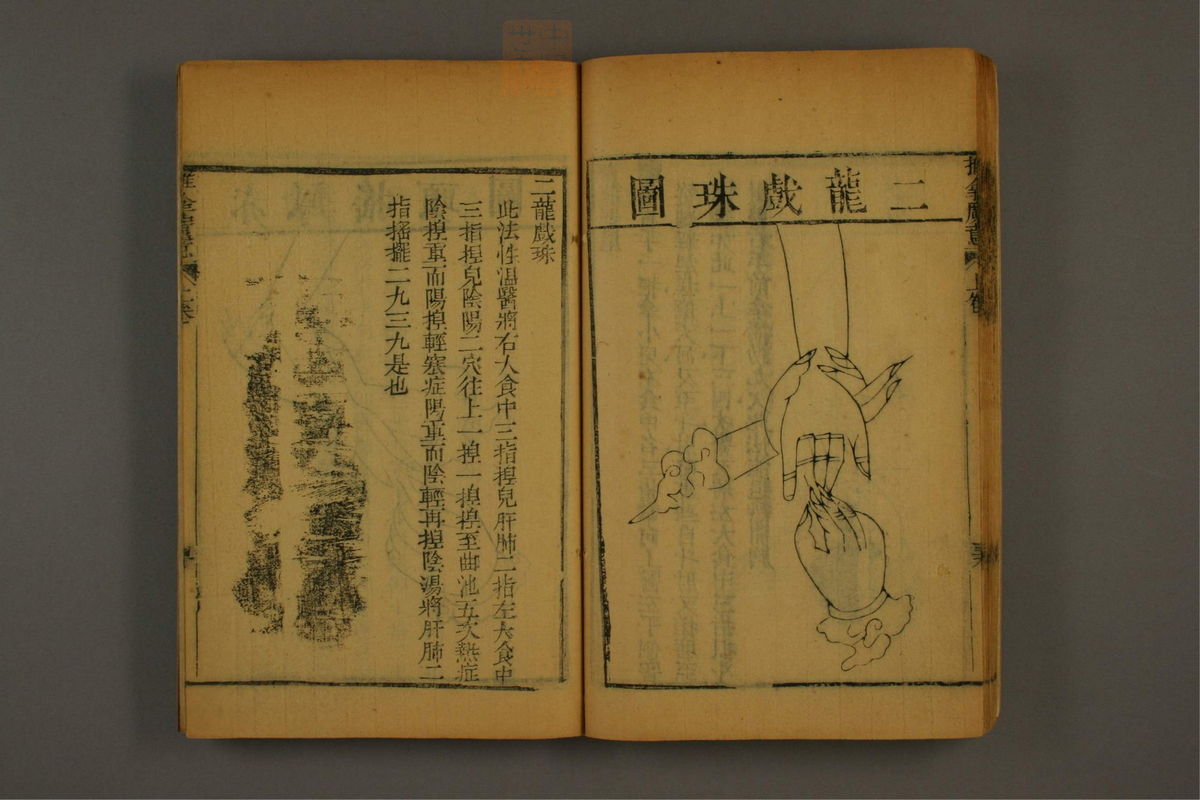 二龍戲珠圖
二龍戲珠
此法性溫醫將右大食中三指揑兒肝肺二指左大食中
三指揑兒陰陽二穴往上一揑一揑揑至曲池五次熱症
陰揑重而陽揑輕寒症陽重而陰輕再揑陰陽將肝肺二
指搖擺二九三九是也